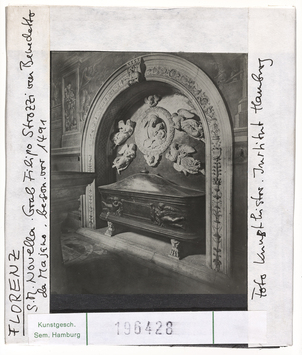 FLORENZ
S.M. Novella. Grab Filippo Strozzi von Benedetto
da Majano. begon. vor 1491
Foto Kunsthistor. Institut Hamburg
Kunstgesch.
Sem. Hamburg
196428